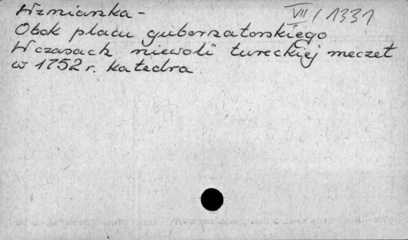 Wzmianka - VII/1331
Obok placu gubernatorskiego
W czasach niewoli tureckiej meczet
w 1752 r. katedra